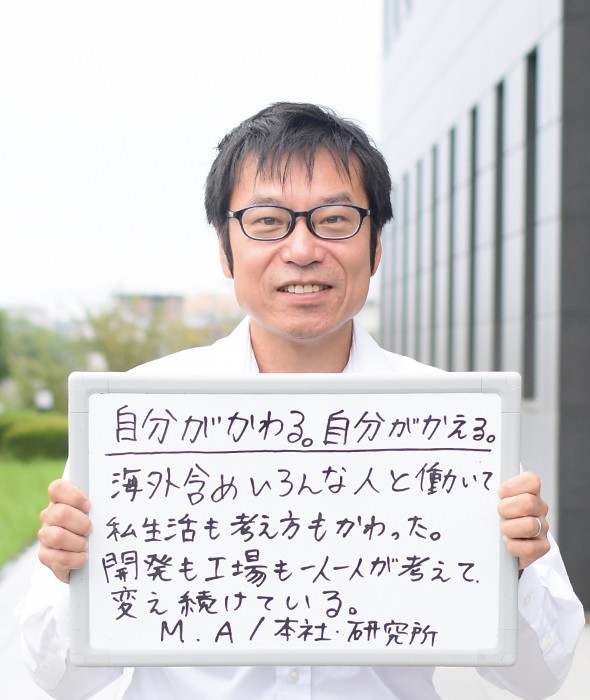 自分がかわる。自分がかえる。
海外含めいろんな人と働いて
私生活も考え方もかわった。
開発も工場も一人一人が考えて、
変え続けている。
M.A/本社・研究所